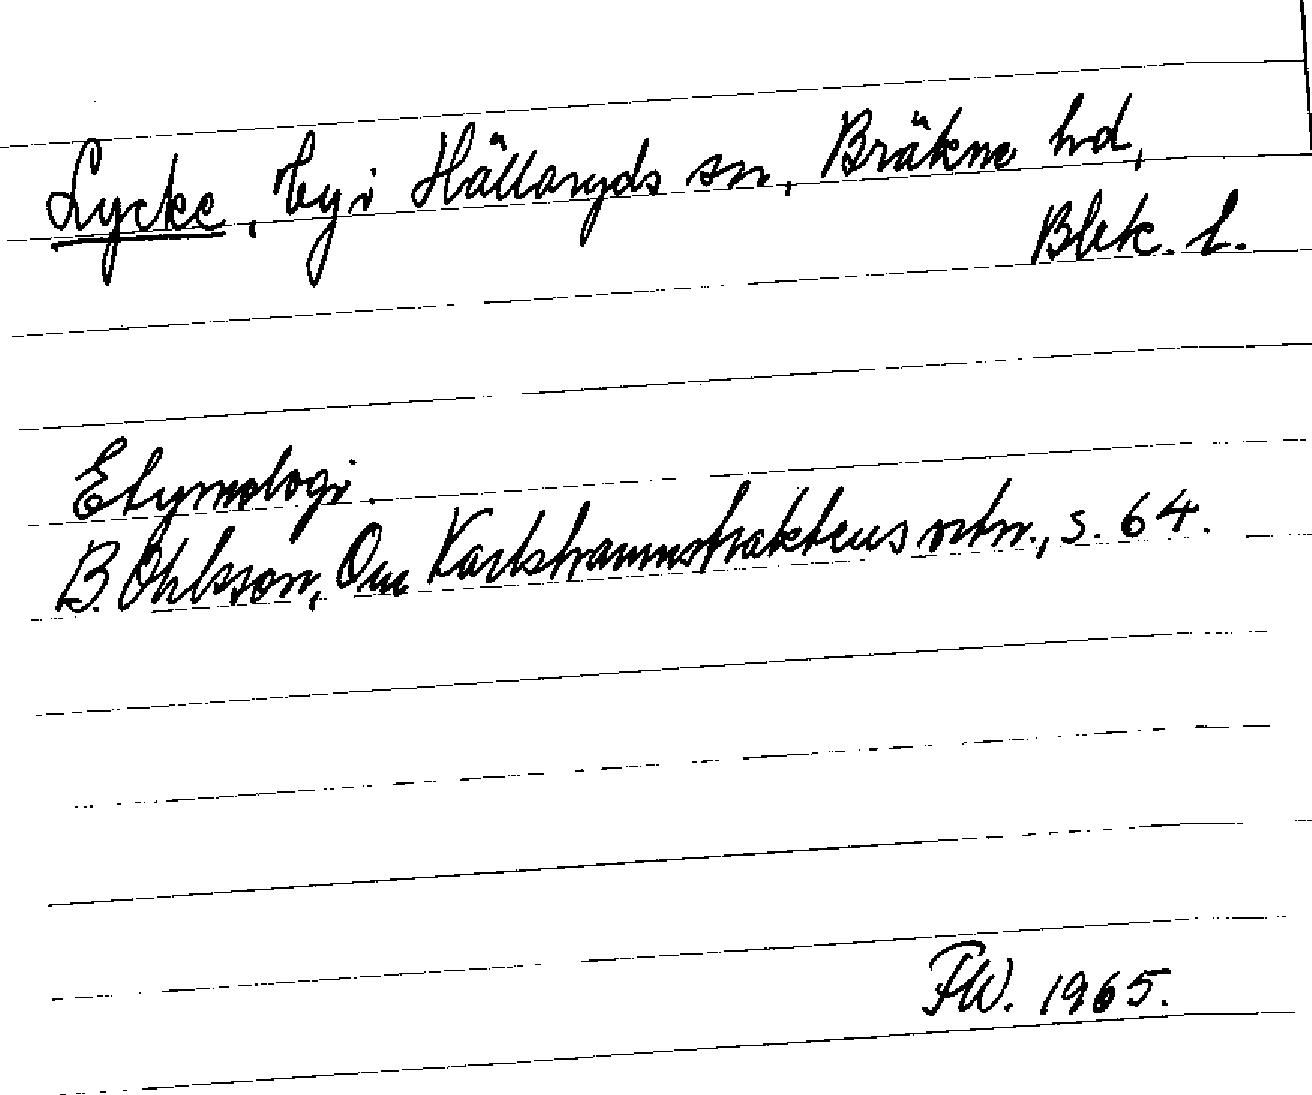 Lycke, by i Hällaryds sn, Bräkne hd,
Blek. l.
Etymologi.
B. Ohlsson, Om Karlshamnstraktens ortn., s. 64.
FW. 1965.